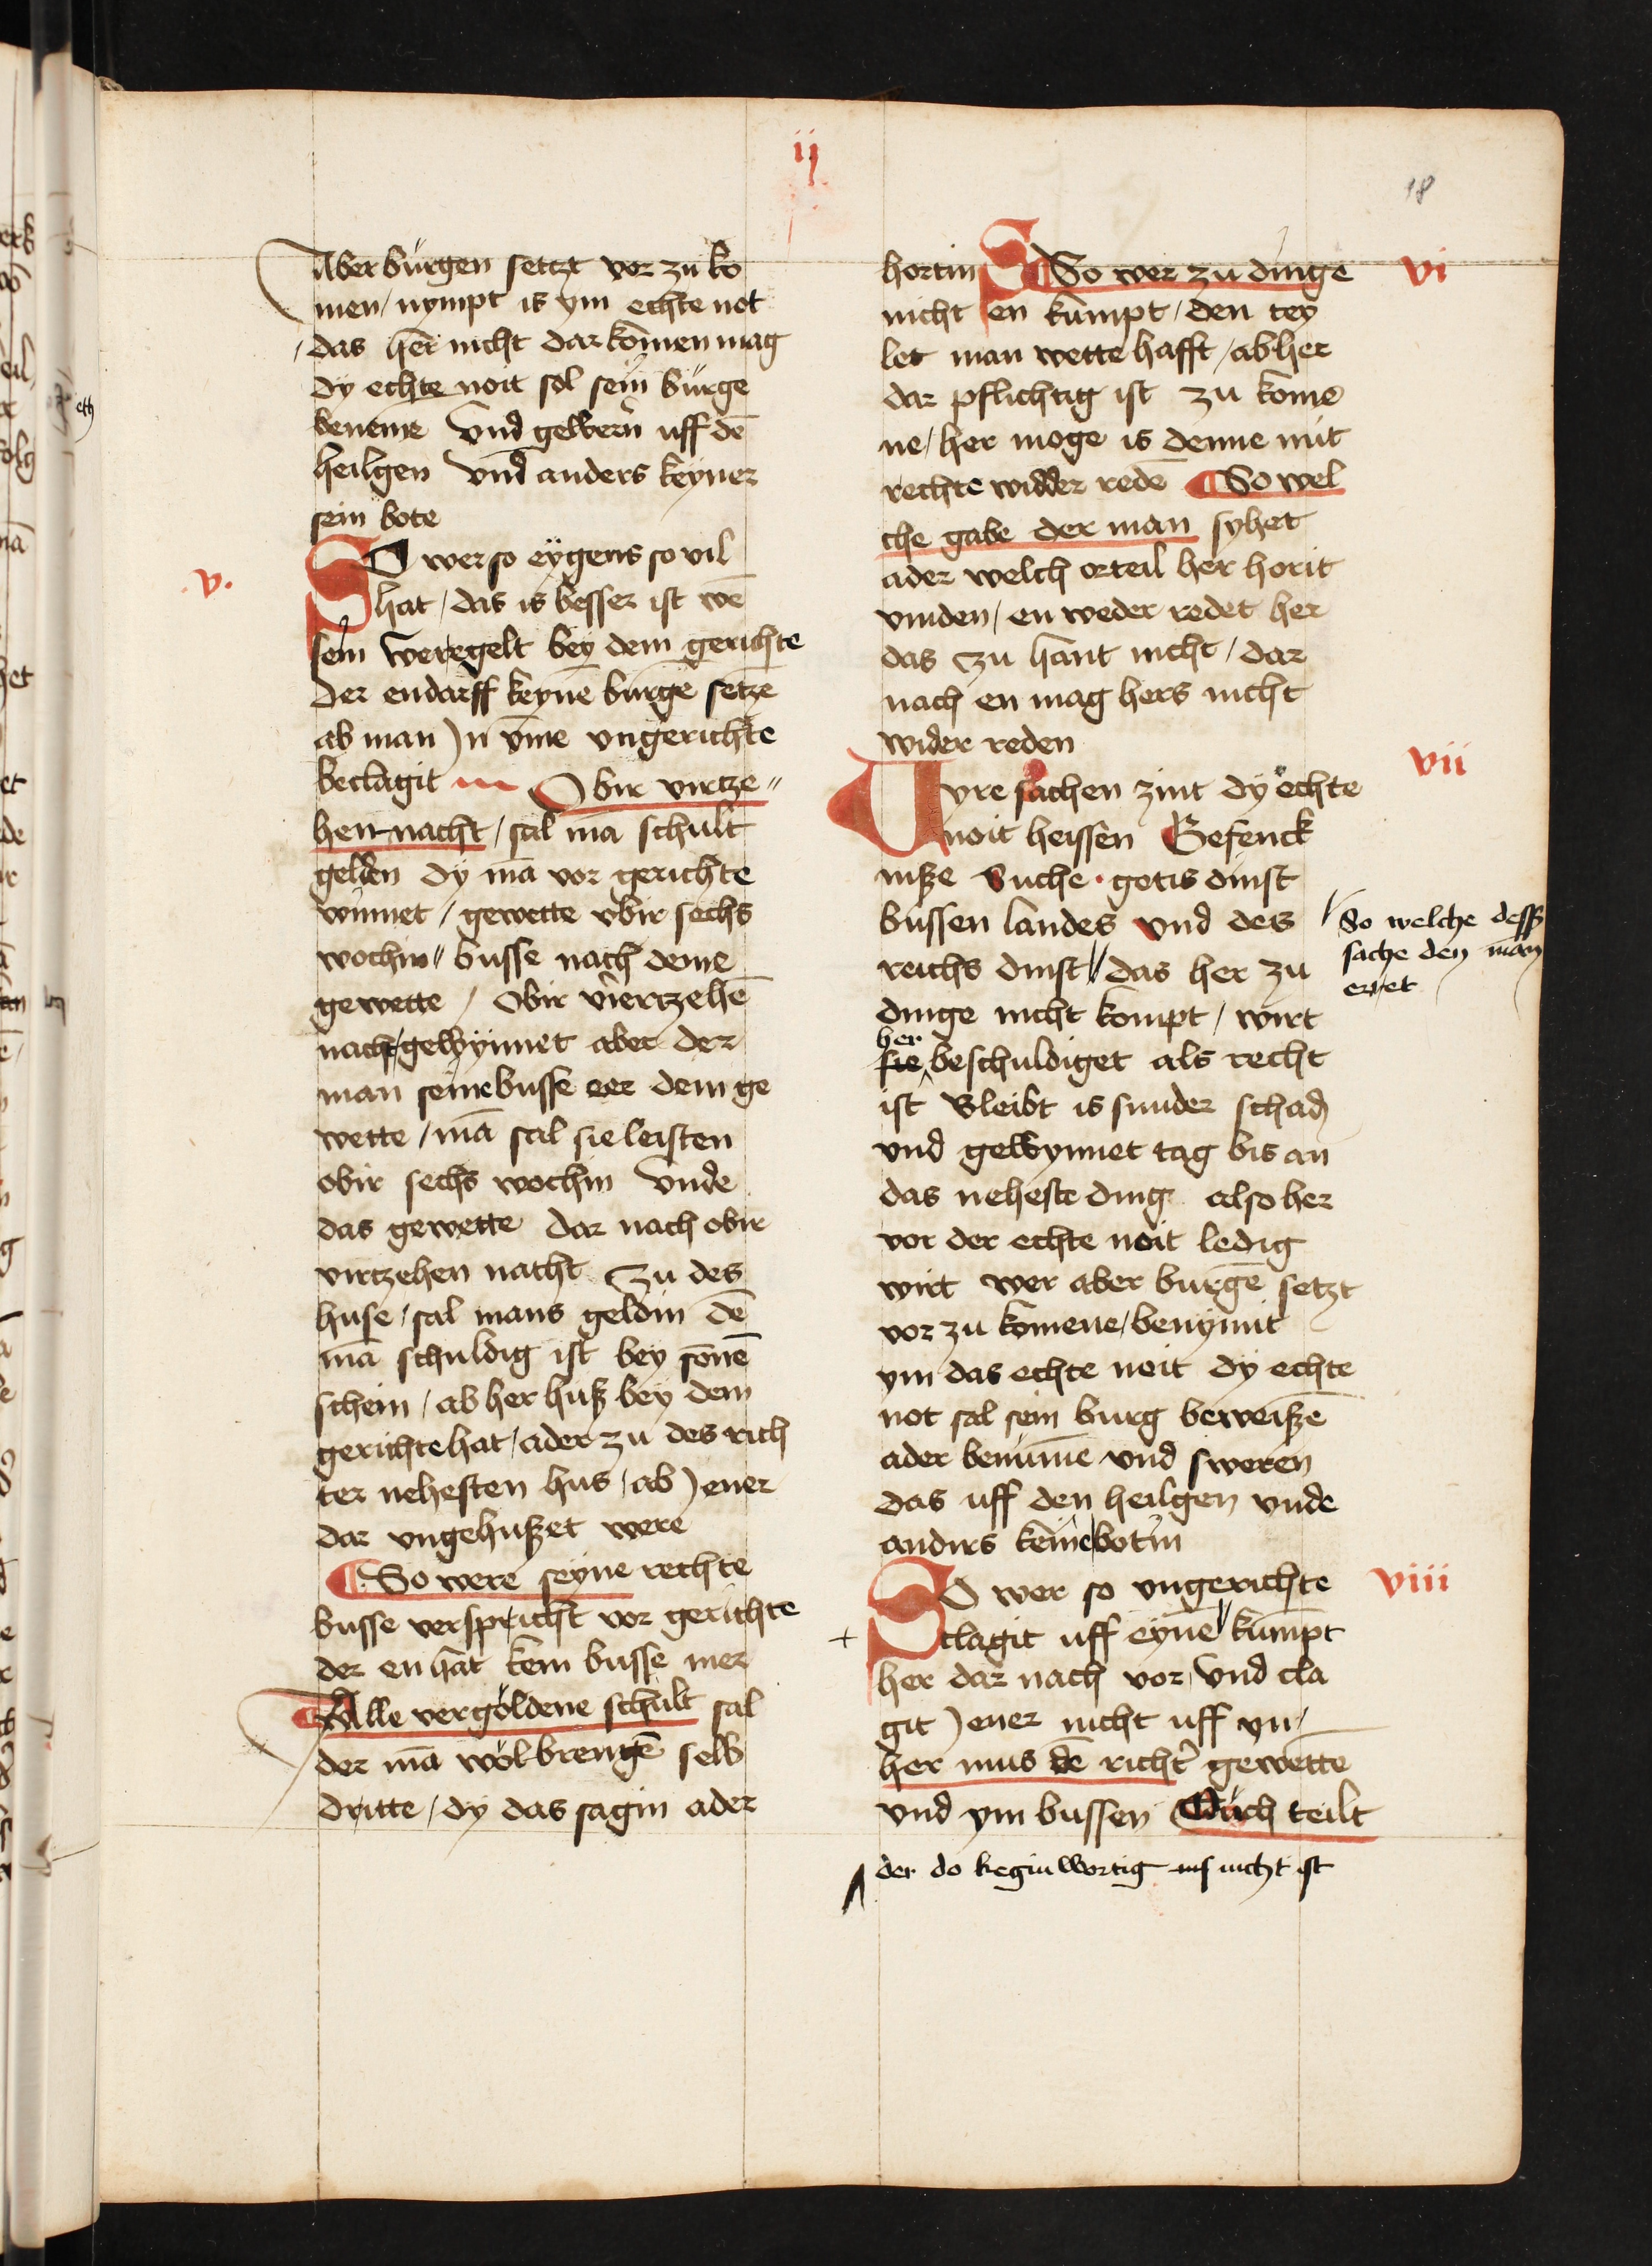 ij
18
Aber burgen setczt vor zu ko
men / nympt is ym echte not
/ das her nicht dar komen mag
dy echte noit sol sein burge
beneme vnd gewern uff dē
heilgen vnd anders keyner
sein bote
.v.
SO wer so eygens so vil
hat / das is besser ist wē
sein weregelt bey dem gerichte
der endarff keynē burgē setzē
ab man jn vmē vngerichte
beclagit Obir virtze〃
hen nacht / sal mā schult
gelden dy mā vor gerichte
winnet / gewette obir sechs
wochin〃 busse nach deme
gewette / Obir viertzehē
nacht / gewynnet aber der
man seine busse eer dem ge
wette / mā sal sie leisten
obir sechs wochin vnde
das gewette dar nach obir
virtzehen nacht Zu des
huse / sal mans geldin dē
mā schuldig ist bey sonnē
schein / ab her husz bey dem
gerichte hat / ader zu des rich
ter nehesten hus / ab jener
dar vngehuszet were
¶ So were seyne rechte
busse verspricht vor gerichte
der en hat kein busse mer
Alle vergoldene schult sal
der mā wolbrengē selb
dritte / dy das sagin ader
hortin ¶ So wer zu dinge
vi
nicht en kumpt / den tey
let man wette hafft / ab her
dar pflichtig ist zu kome
ne / her moge is denne mit
rechte widder redē ¶ So wel
che gabe der man syhet
ader welch orteil her horit
vinden / en weder redet her
das zu hant nicht / dar
nach en mag hers nicht
wider reden
vii
Vyre sachen zint dy echte
noit heissen Gefenck
nisze Suche · gotis dinst
bussen landes vnd des
reichs dinst // das her zu
So welche desß
sache den man
erret
dinge nicht kompt / wirt
her
sie beschuldiget als recht
ist Bleibt is sunder schadē
vnd gewynnet tag bis an
das neheste ding also her
vor der echte noit ledig
wirt wer aber burgē setzt
vor zu komene / benymit
ym das echte noit dy echte
not sal sein burg beweiszē
ader benumē vnd sweren
das uff den heilgen vnde
andirs keine botin
viii
SO wer so vngerichte
+
clagit uff eynē // kumpt
her dar nach vor vnd cla
git jener nicht uff yn /
her mus dē richter gewette
vnd ym bussen Ouch teilt
der do keginwortig nicht ist